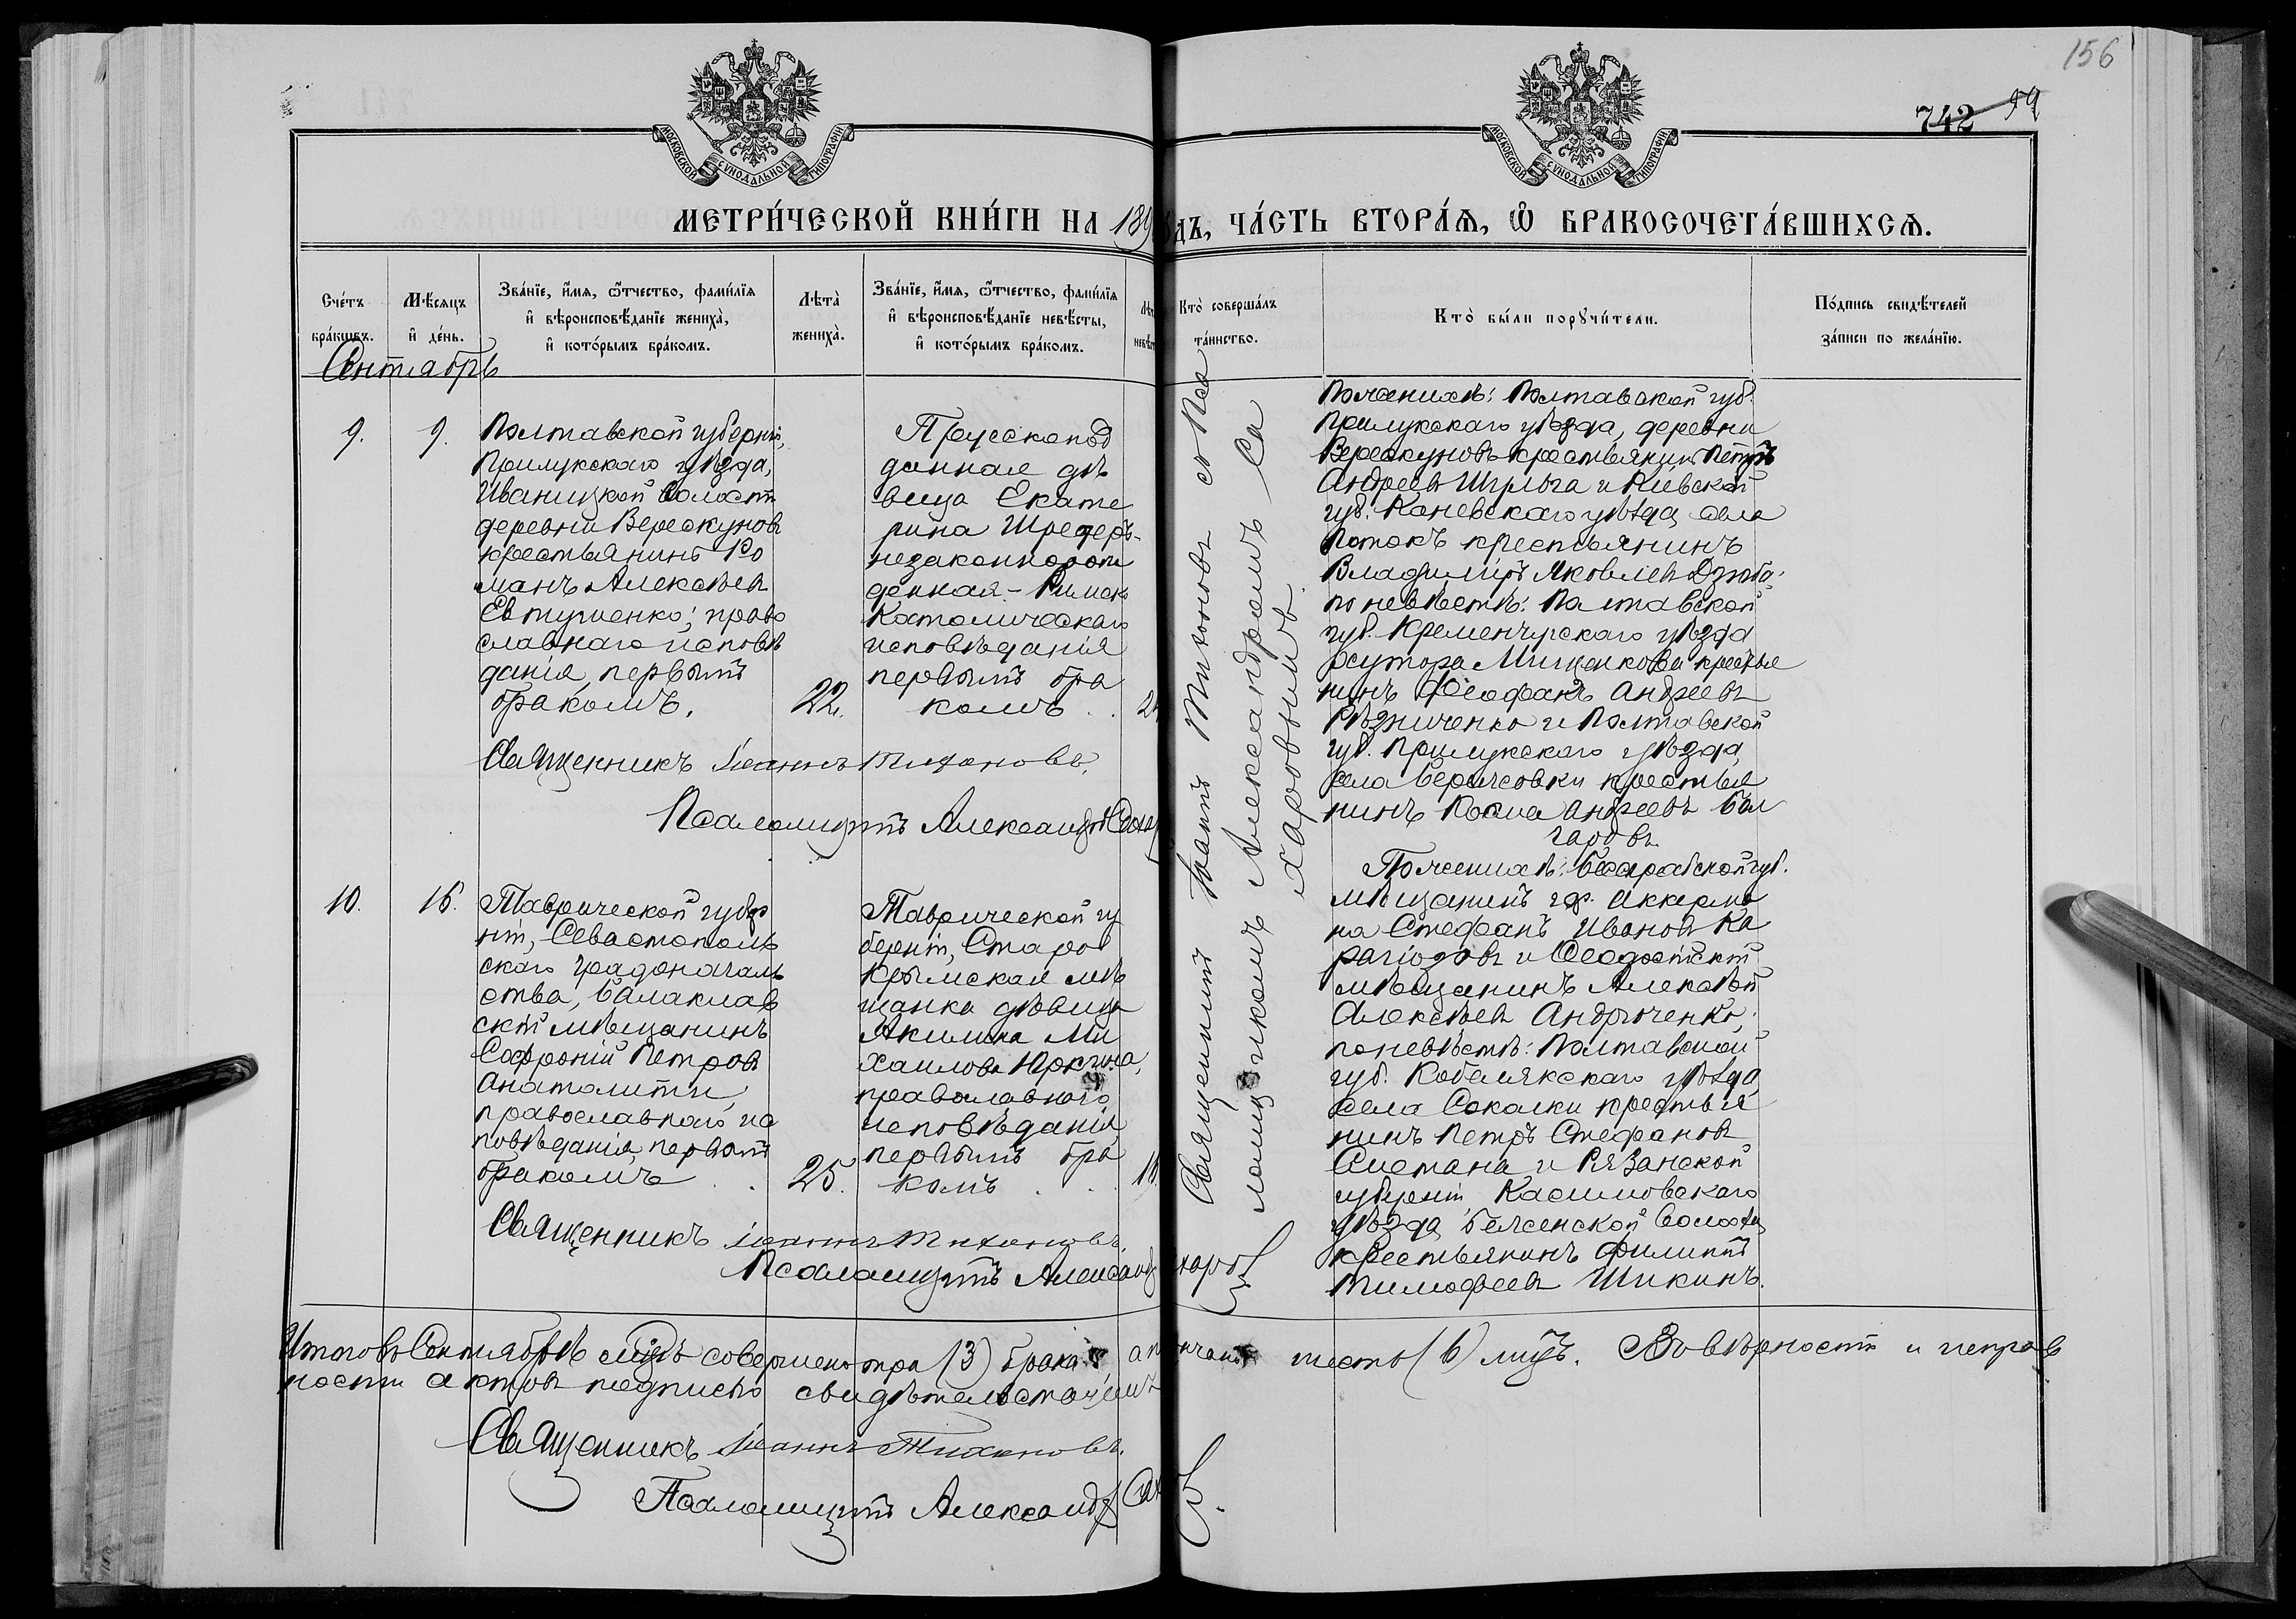 156
742 59
МОСКОВСКОЙ СѴНОДАЛЬНОЙ ТИПОГРАФІИ
МОСКОВСКОЙ СѴНОДАЛЬНОЙ ТИПОГРАФІИ
МЕТРИ́ЧЕСКОЙ КНИ́ГИ НА 189 ДЪ, ЧА́СТЬ ВТОРА́Ѧ, Ѡ БРАКОСОЧЕТА́ВШИХСѦ.
Сче́тъ бра́кѡвъ.
Мѣ́сѧцъ и де́нь.
Зва́нїе, и́мѧ, ѻ҆́тчество, фами́лїѧ и вѣроисповѣ́данїе жениха̀, и кото́рымъ бра́комъ.
Лѣта̀ жениха̀.
Зва́нїе, и́мѧ, ѻ҆́тчество, фами́лїѧ и вѣроисповѣ́данїе невѣ́сты, и кото́рымъ бра́комъ.
Кто̀ соверша́лъ та́инство.
Кто̀ бы́ли порꙋчи́тели.
По́дпись свидѣ́телей за́писи по жела́нїю.
Сентябрь
9.
9.
Полтавской губерніи,
Прилукскаго уѣзда,
Иваницкой волости
деревни Верескуновъ
крестьянинъ Ро
манъ Алексѣевъ
Евтушенко; право
славнаго исповѣ
данія, первымъ
бракомъ.
22.
Прусскопод
данная дѣ
вица Екате
рина Шредеръ-
незаконнорож
денная - Римско
Католическаго
исповѣданія
первымъ бра
комъ . .
Священникъ Іоаннъ Тихоновъ.
Псаломщикъ Александръ Сахар
Священникъ Іоаннъ Тихоновъ съ Пса
ломщикомъ Александромъ Са
харовымъ.
По женихѣ: Полтавской губ.
Прилукскаго уѣзда, деревни
Верескуновъ крестьянинъ Петръ
Андреевъ и Кіевской
губ. Каневскаго уѣзда села
Потокъ крестьянинъ
Владиміръ Яковлевъ Дзюба;
по невѣстѣ: Полтавской
губ. Кременчугскаго уѣзда
хутора Мищенкова крестья
нинъ Феофанъ Андреевъ
Рѣзниченко и Полтавской
губ. Прилукскаго уѣзда,
села крестья
нинъ Косма Андреевъ Бол
гаровъ.
10.
16.
Таврической губер
ніи, Севастополь
скаго градоначаль
ства, Балаклав
скій мѣщанинъ
Софроній Петровъ
Анатолити,
православнаго ис
повѣданія, первымъ
бракомъ . .
25.
Таврической гу
берніи, Старо
Крымская мѣ
щанка дѣвица
Акилина Ми
хаилова Юркина,
православнаго
исповѣданія,
первымъ бра
комъ . . .
По женихѣ: Бессарабской губ.
мѣщанинъ гор. Аккерма
на Стефанъ Ивановъ Ка
рагіозовъ и Ѳеодосійскій
мѣщанинъ Алексѣй
Алексѣевъ Андрюченко;
по невѣстѣ: Полтавской
губ. Кобелякскаго уѣзда
села Соколки крестья
нинъ Петръ Стефановъ
Сметана и Рязанской
губерніи Касимовскаго
уѣзда, волости
крестьянинъ Филиппъ
Тимофеевъ Шикинъ.
Священникъ Іоаннъ Тихоновъ.
Псаломщикъ Александ харовъ
Итого въ Сентябрѣ мѣсяцѣ совершено три (3) брака, а вѣнчано шесть (6) лицъ. Въ вѣрности и исправ
ности актовъ подписью свидѣтельствуемъ
Священникъ Іоаннъ Тихоновъ.
Псаломщикъ Александръ Сах въ.